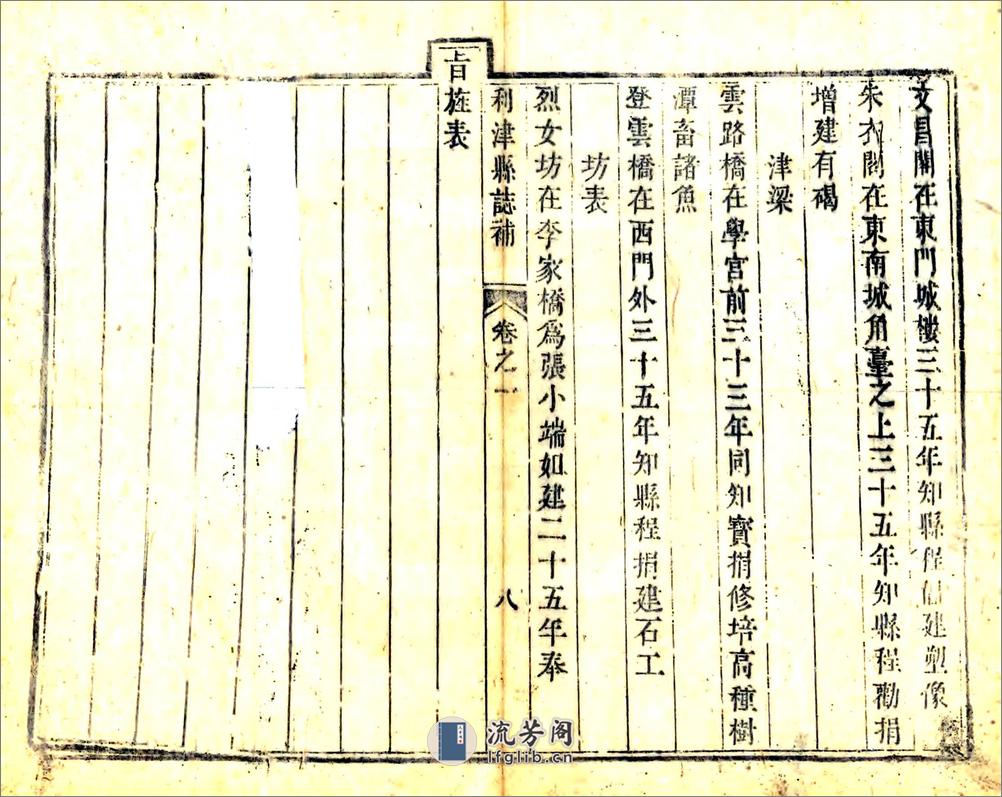 文昌閣在東門城樓三十五年知縣程 建塑像
朱衣閣在東南城角臺之上三十五年知縣程勸捐
增建有碣
津梁
雲路橋在學宮前三十三年同知寶捐修培高種樹
潭畜諸魚
登雲橋在西門外三十五年知縣程捐建石工
坊表
烈女坊在李家橋為張小端如建二十五年奉
利津縣誌補 卷之一 八
旨旌表
流芳阁
lfglib.cn